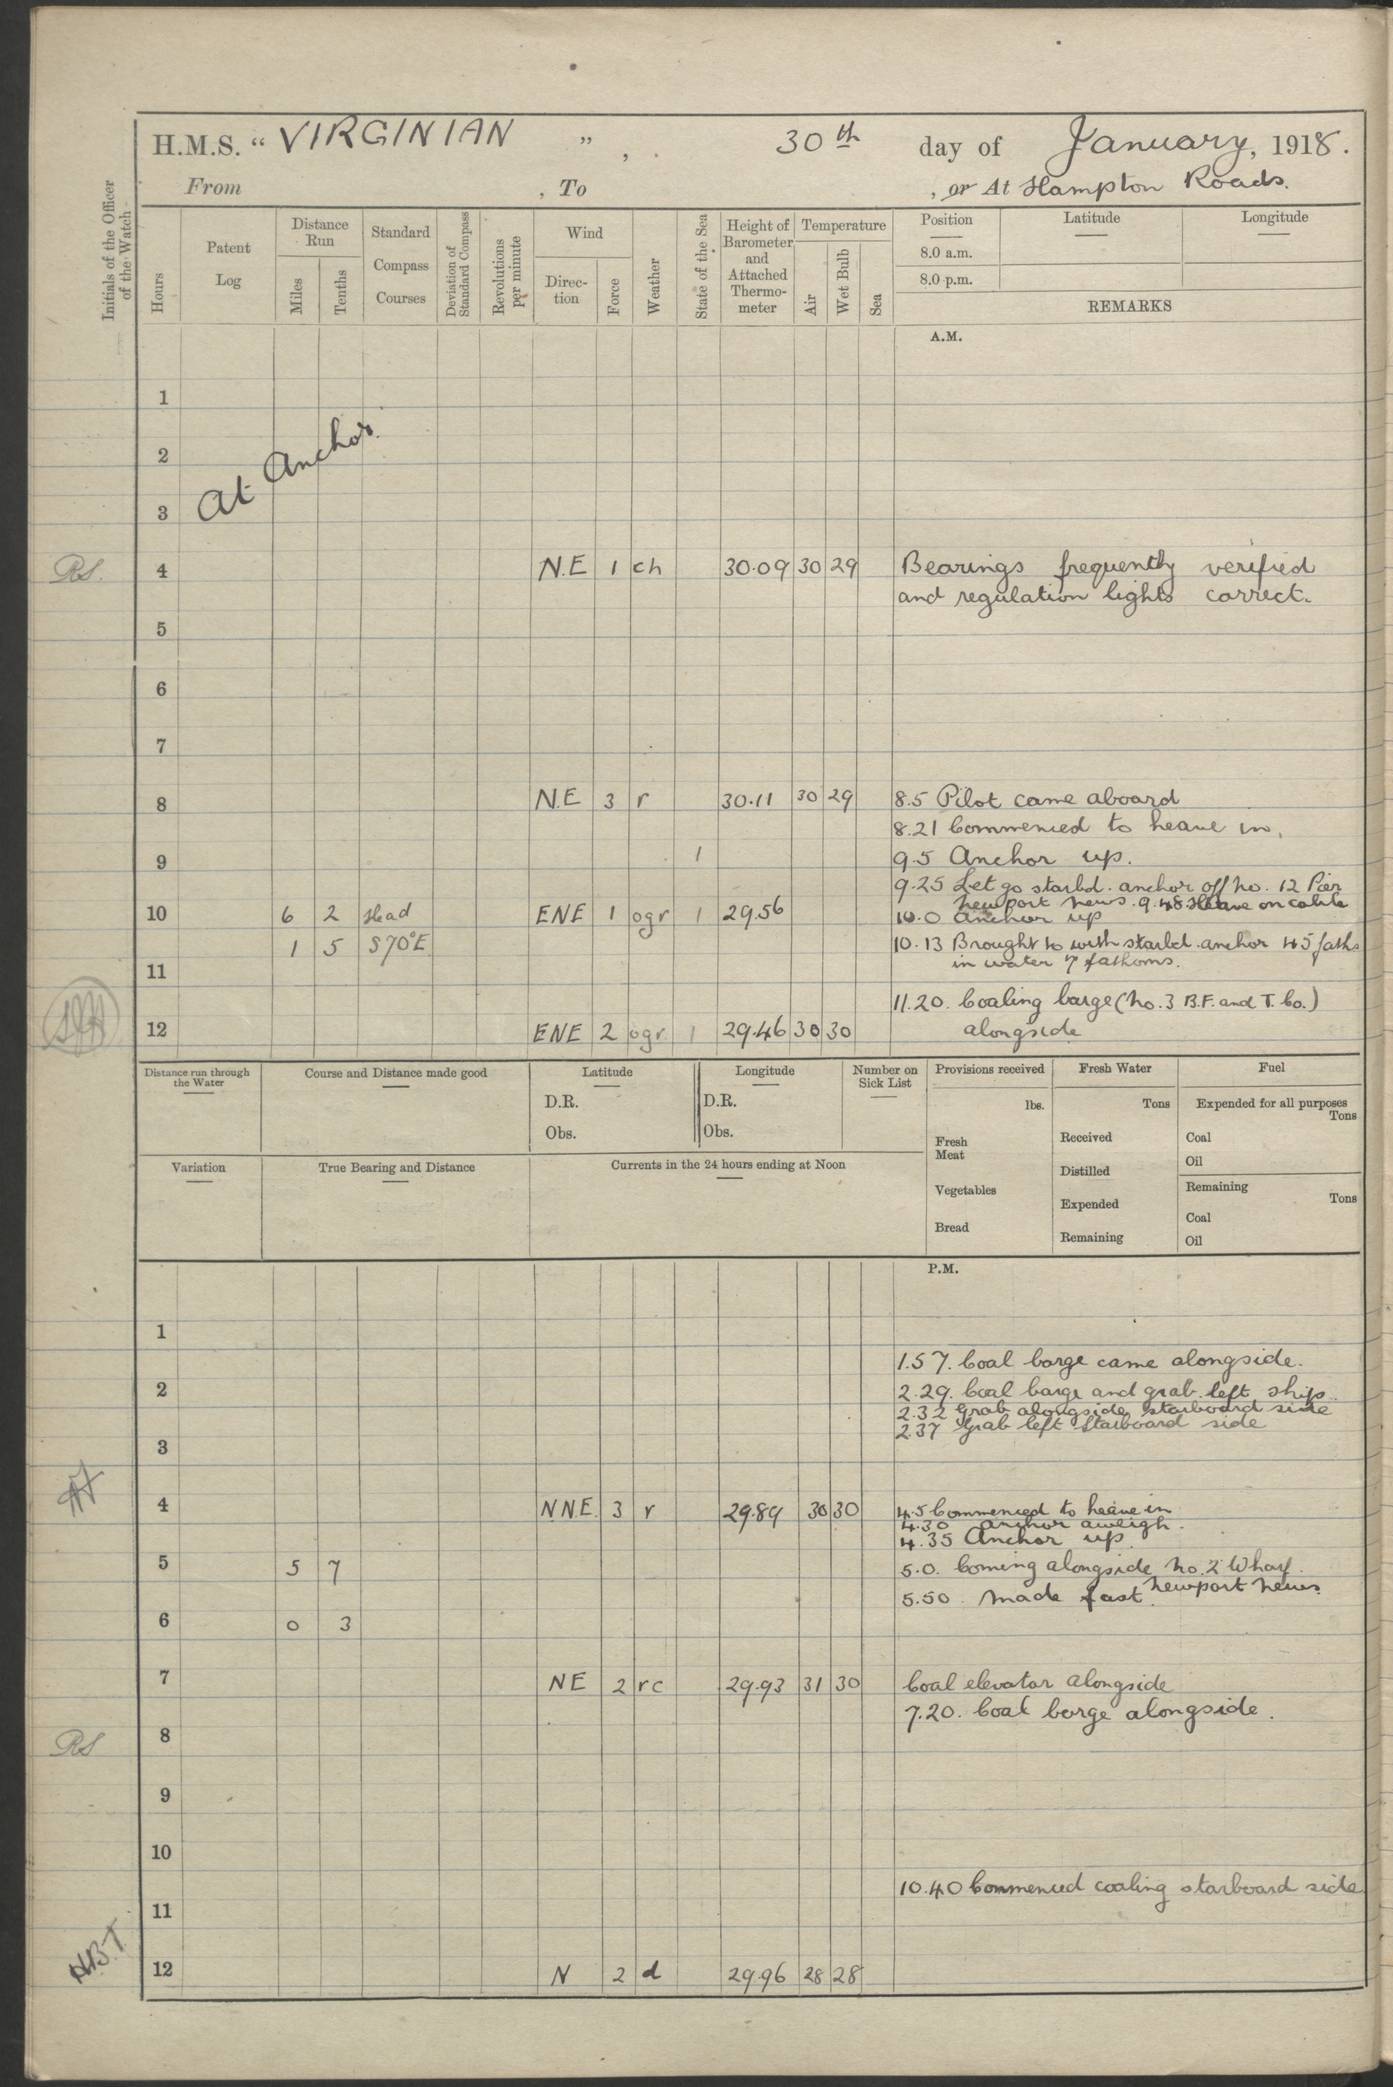 H.M.S. “ VIRGINIAN ” , 30th day of January, 1918.
From , To , or At Hampton Roads.
Initials of the Officer of the Watch
Hours
Patent Log
Distance Run
Miles
Tenths
Standard Compass Courses
Deviation of Standard Compass
Revolutions per minute
Wind
Direc-tion
Force
Weather
State of the Sea
Height of Barometer and Attached Thermo-meter
Temperature
Air
Wet Bulb
Sea
Position Latitude Longitude
8.0 a.m.
8.0 p.m.
REMARKS
A.M.
1
2
3
At Anchor.
RS. 4 N.E 1 ch 30.09 30 29 Bearings frequently verified
and regulation lights correct.
5
6
7
8 N.E 3 r 30.11 30 29 8.5 Pilot came aboard
8.21 Commenced to heave in.
9 1 9.5 Anchor up.
9.25 Let go starbd. anchor off No. 12 Pier
Newport News. 9.48 Heave on cable
10 6 2 Head ENE 1 ogr 1 29.56 10.0 Anchor up
1 5 S70°E 10.13 Brought to with starbd. anchor 45 faths
11 in water 7 fathoms.
11.20. Coaling barge (No. 3 B.F. and T. Co.)
12 ENE 2 ogr 1 29.46 30 30 alongside
Distance run through the Water
Course and Distance made good
Latitude
D.R.
Obs.
Longitude
D.R.
Obs.
Number on Sick List
Provisions received
lbs.
Fresh Meat
Vegetables
Bread
Fresh Water
Tons
Received
Distilled
Expended
Remaining
Fuel
Expended for all purposes
Tons
Coal
Oil
Remaining
Tons
Coal
Oil
Variation
True Bearing and Distance
Currents in the 24 hours ending at Noon
P.M.
1
1.57. Coal barge came alongside.
2 2.29. Coal barge and grab left ship
2.32 Grab alongside starboard side
2.37 Grab left starboard side
3
4 NNE. 3 r 29.89 30 30 4.5 Commenced to heave in
4.30 anchor aweigh.
4.35 Anchor up.
5 5 7 5.0. Coming alongside No. 2 Wharf
Newport News
5.50. Made fast.
6 0 3
7 NE 2 rc 29.93 31 30 Coal elevator alongside
7.20. Coal barge alongside.
RS 8
9
10
10.40 Commenced coaling starboard side
11
HBT 12 N 2 d 29.96 28 28